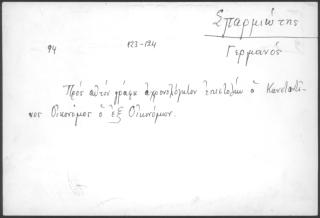 Σπαρμιώτης
Γερμανός
94 123-124
Πρός αὐτόν γράφει ἀχρονολόγητον ἐπιστολήν ὁ Κωνσταντῖ-
νος Οἰκονόμος ὁ ἐξ Οἰκονόμων.